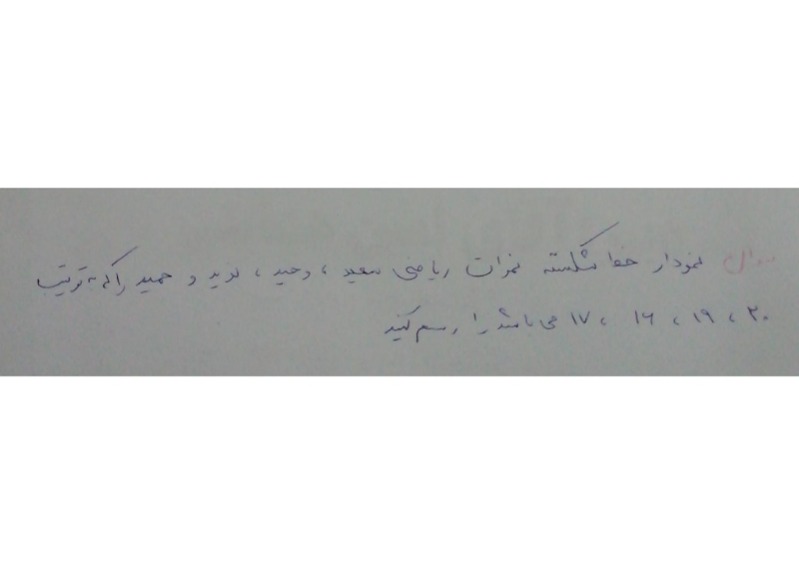 سوال نمودار خط شکسته نمرات ریاضی سعید ، وحید ، نوید و حمید را که به ترتیب
۲۰ ، ۱۹ ، ۱۶ ، ۱۷ می باشد را رسم کنید